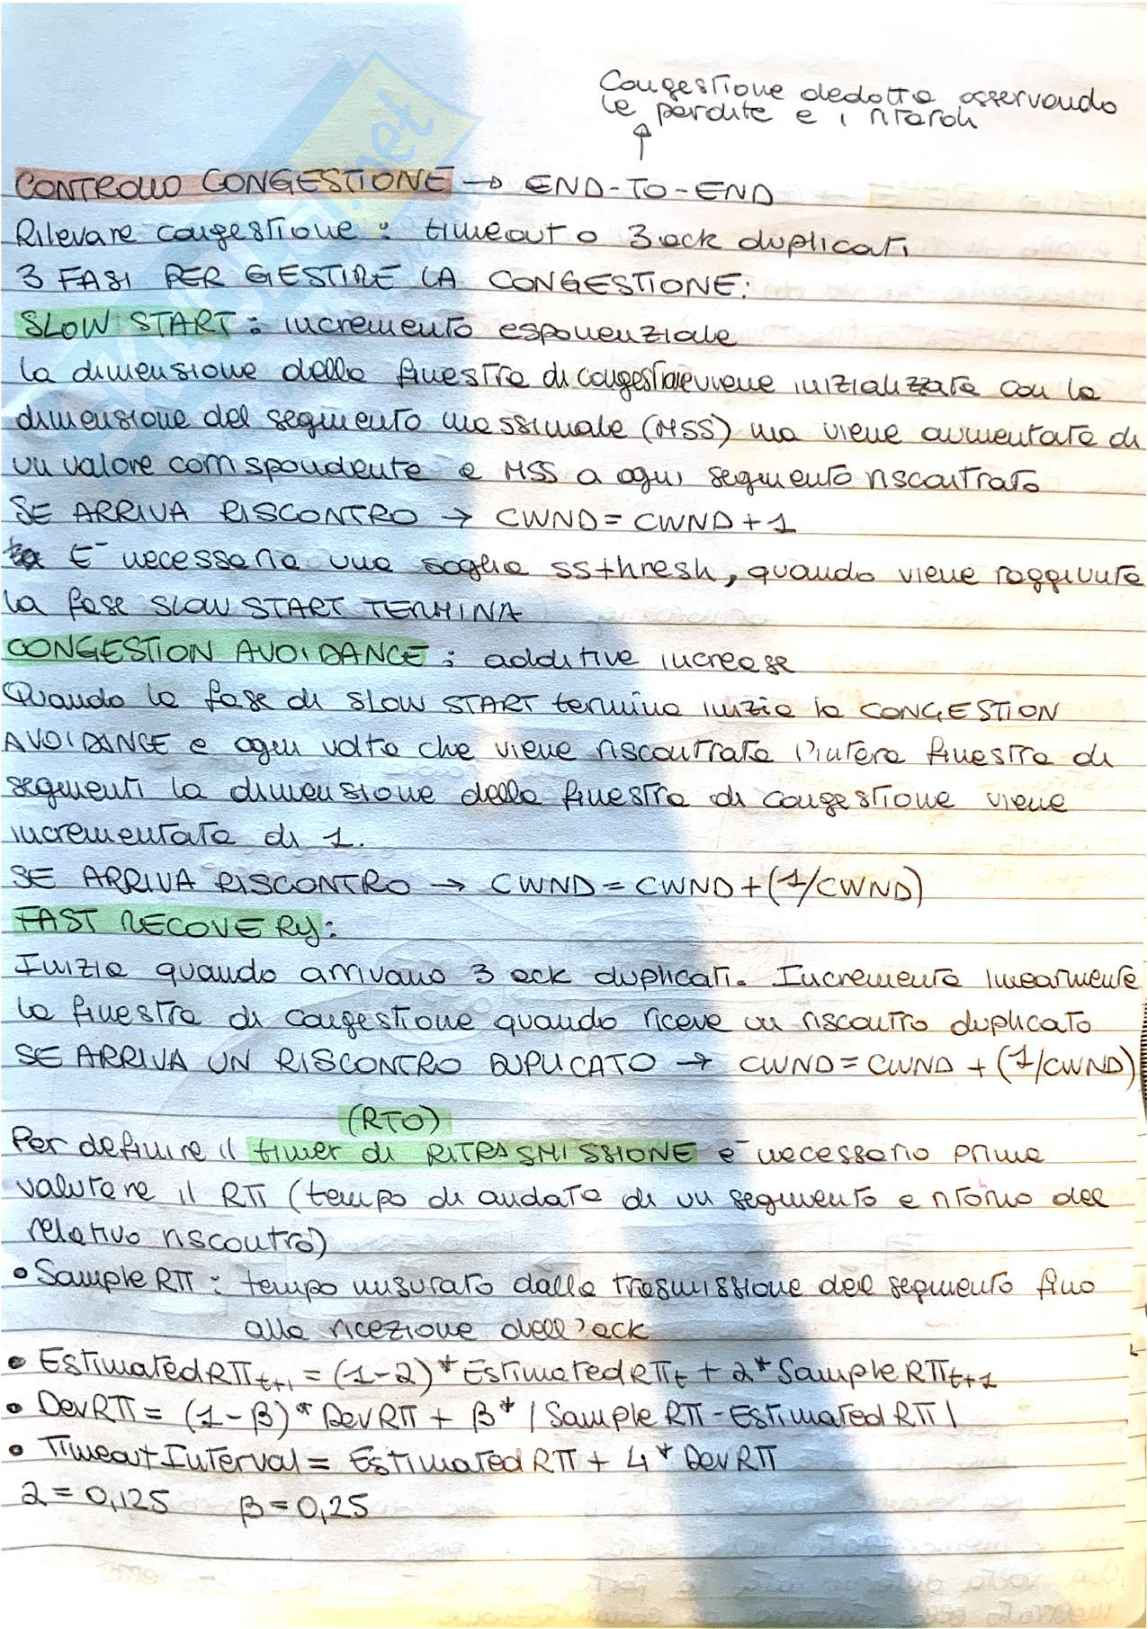 Congestione dedotta osservando
le perdite e i ritardi
CONTROLLO CONGESTIONE → END-TO-END
Rilevare congestione: timeout o 3 ack duplicati
3 FASI PER GESTIRE LA CONGESTIONE:
SLOW START: incremento esponenziale
la dimensione della finestra di congestione viene inizializzata con la
dimensione del segmento massimale (MSS) ma viene aumentata di
un valore corrispondente a MSS a ogni segmento riscontrato
SE ARRIVA RISCONTRO → CWND = CWND + 1
E' necessaria una soglia ssthresh, quando viene raggiunta
la fase SLOW START TERMINA
CONGESTION AVOIDANCE: additive increase
Quando la fase di SLOW START termina inizia la CONGESTION
AVOIDANCE e ogni volta che viene riscontrata l'intera finestra di
segmenti la dimensione della finestra di congestione viene
incrementata di 1.
SE ARRIVA RISCONTRO → CWND = CWND + (1/CWND)
FAST RECOVERY:
Inizia quando arrivano 3 ack duplicati. Incrementa linearmente
la finestra di congestione quando riceve un riscontro duplicato
SE ARRIVA UN RISCONTRO DUPLICATO → CWND = CWND + (1/CWND)
(RTO)
Per definire il timer di RITRASMISSIONE è necessario prima
valutare il RTT (tempo di andata di un segmento e ritorno del
relativo riscontro)
• SampleRTT: tempo misurato dalla trasmissione del segmento fino
alla ricezione dell'ack
• EstimatedRTTt+1 = (1-α)* EstimatedRTTt + α* SampleRTTt+1
• DevRTT = (1-β)* DevRTT + β* |SampleRTT - EstimatedRTT|
• TimeoutInterval = EstimatedRTT + 4* DevRTT
α = 0,125 β = 0,25